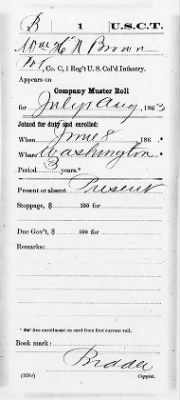 B 1 U.S.C.T.
Wm H. N. Brown
Pvt, Co. C, 1 Reg't U. S. Col'd Infantry.
Appears on
Company Muster Roll
for July & Aug, 1863
Joined for duty and enrolled:
When June 8, 186 .
Where Washington.
Period 3 years.*
Present or absent Present
Stoppage, $ 100 for
Due Gov't, $ 100 for
Remarks:
* See enrollment on card from first current roll.
Book mark:
(358c) Copyist.